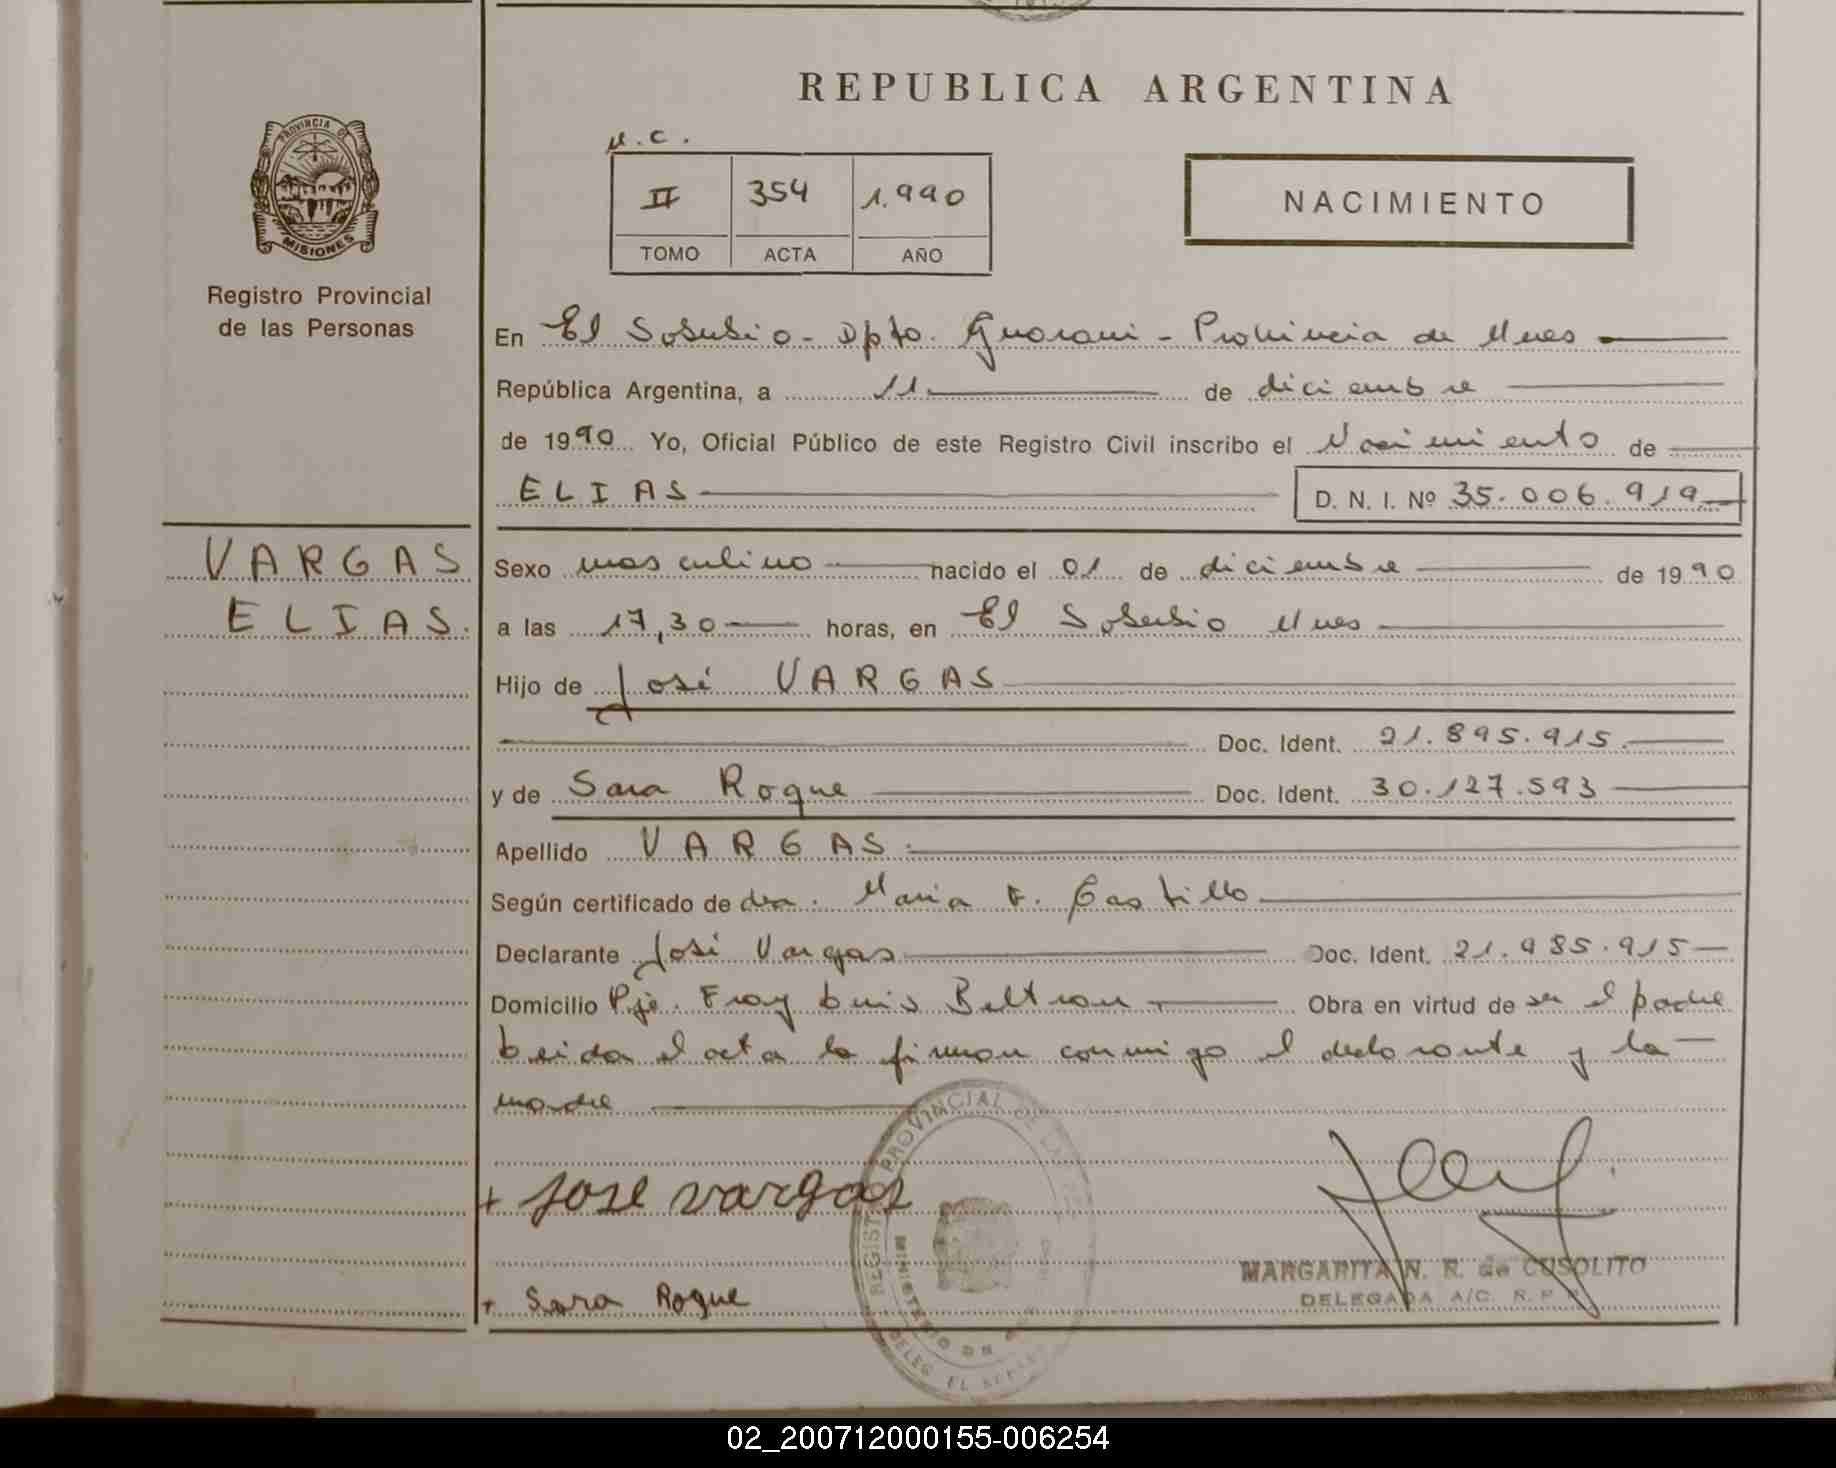 REPUBLICA ARGENTINA
PROVINCIA DE
MISIONES
Registro Provincial
de las Personas
N.C.
II 354 1.990
TOMO ACTA AÑO
NACIMIENTO
En El Soberbio - Dpto. Guarani - Provincia de Mnes
República Argentina, a 11 de diciembre
de 1990 Yo, Oficial Público de este Registro Civil inscribo el Nacimiento de
ELIAS D. N. I. Nº 35.006.919
VARGAS
ELIAS.
Sexo masculino nacido el 01 de diciembre de 1990
a las 17,30 horas, en El Soberbio Mnes
Hijo de José VARGAS
Doc. Ident. 21.895.915
y de Sara Roque Doc. Ident. 30.127.593
Apellido VARGAS
Según certificado de dra. Maria E. Castillo
Declarante José Vargas Doc. Ident. 21.985.915
Domicilio Pje. Fray Luis Beltran Obra en virtud de ser el padre
Leida el acta la firman conmigo el declarante y la
madre
+ jose vargas
+ Sara Roque
REGISTRO PROVINCIAL DE LAS
MINISTERIO DE
DELEG EL SOBERBIO
MARGARITA N. R. de CUSOLITO
DELEGADA A/C. R. P. P.
02_200712000155-006254